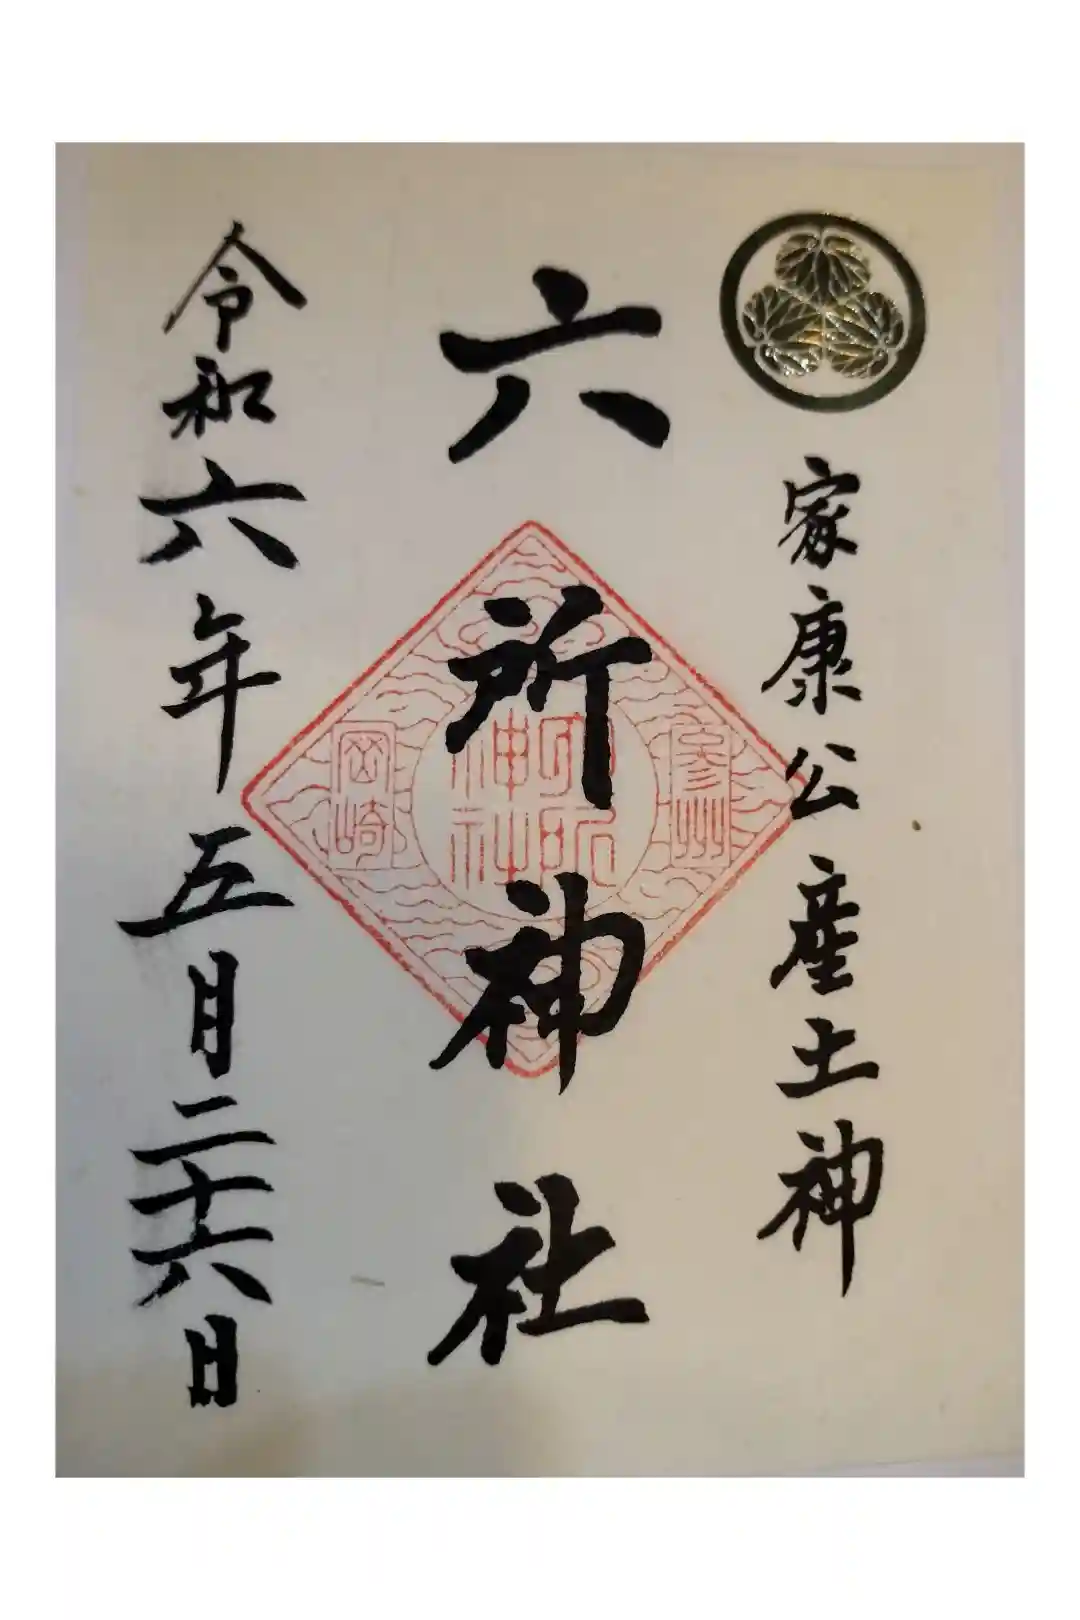 家康公産土神
六所神社
令和六年五月二十六日
參州
六所神社
岡崎